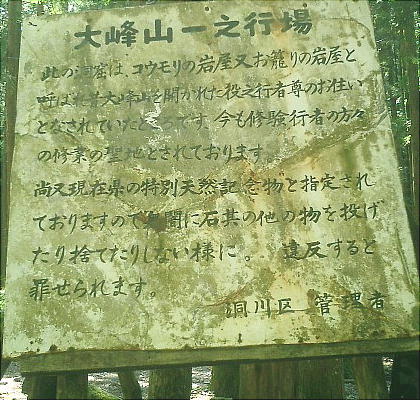 大峰山一之行場
此の洞窟は、コウモリの岩屋又お籠りの岩屋と
呼ばれ昔大峰山を開かれた役之行者尊のお住い
となされていたところです。今も修験行者の方々
の修業の聖地とされております。
尚又現在県の特別天然記念物と指定され
ておりますので 闇に石其の他の物を投げ
たり捨てたりしない様に。 違反すると
罪せられます。
洞川区 管理者